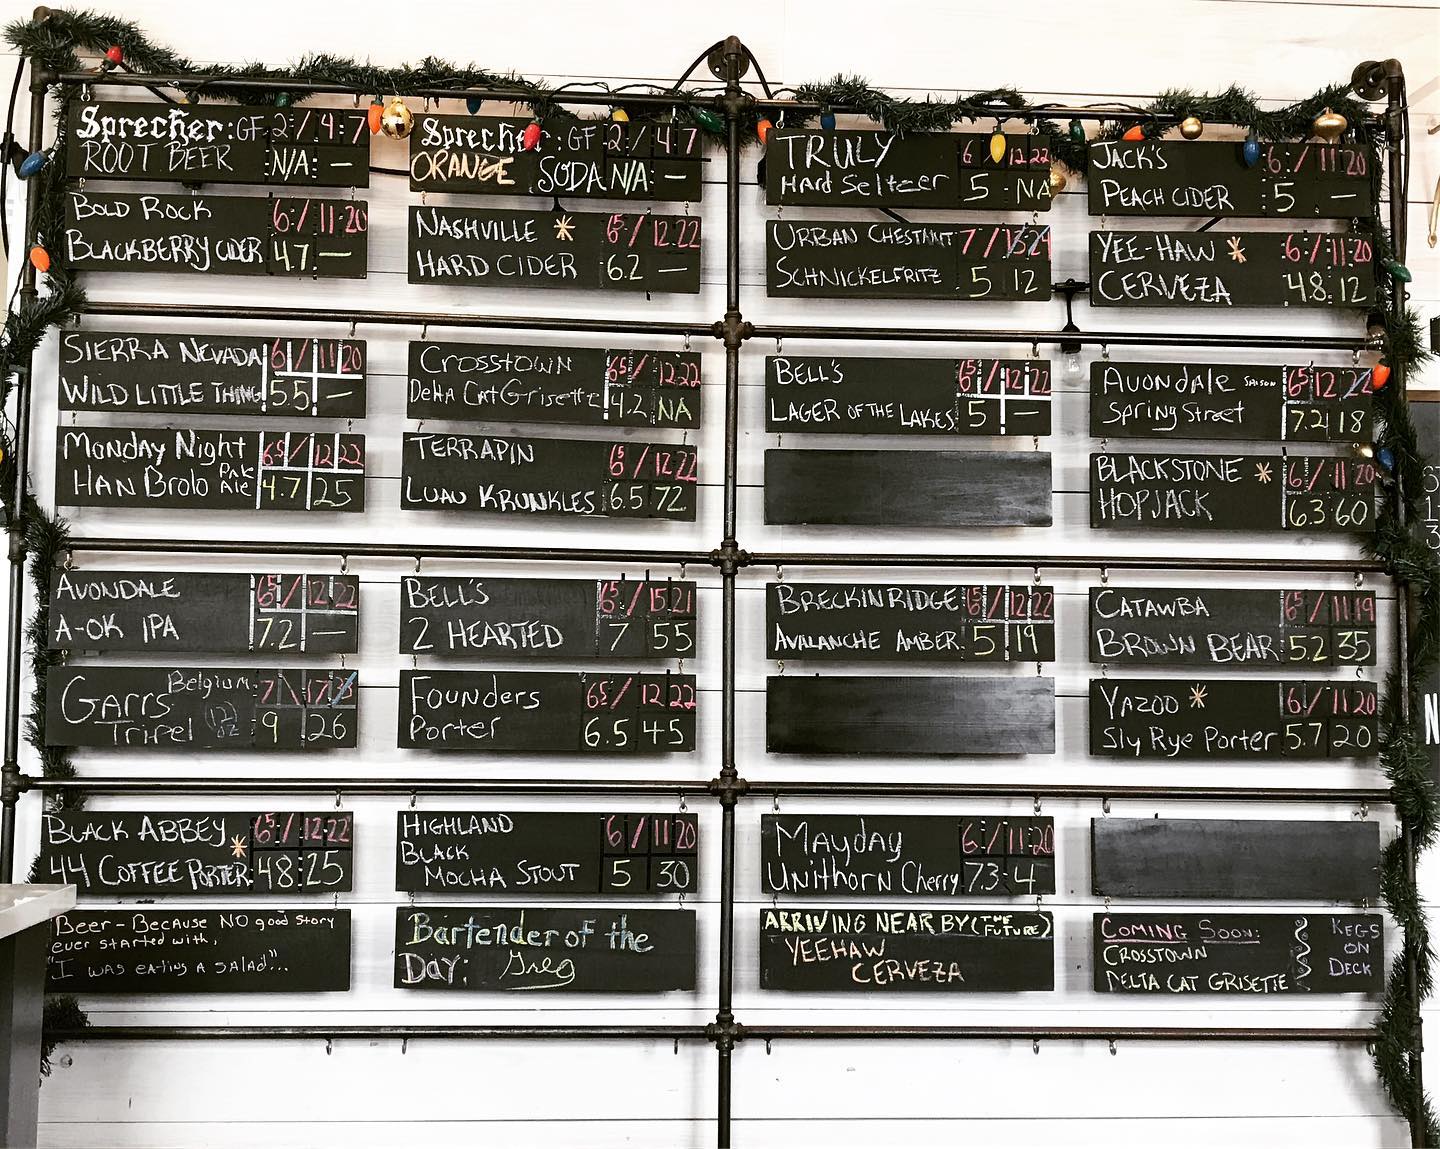 Sprecher: GF 2 / 4:7
ROOT BEER N/A: —
BOLD ROCK 6: / 11:20
BLACKBERRY CIDER 4.7 —
: GF 2 / 4:7
ORANGE SODA N/A: —
NASHVILLE * 65 / 12:22
HARD CIDER 6.2 —
TRULY 6 12 22
HARD Seltzer 5 · NA
URBAN CHESTNUT 7 /
SCHNICKELFRITZ 5 12
JACK'S 6: / 11:20
PEACH CIDER 5 —
YEE-HAW * 6: / 11:20
CERVEZA 4.8: 12
SIERRA NEVADA 6 / 11 20
WILD LITTLE THING 5.5 —
Monday Night 65 / 12 22
HAN Brolo Pale Ale 4.7 25
CROSSTOWN 65 / 12:22
Delta Cat Grisette 4.2 NA
TERRAPIN 65 / 12:22
LUAU KRUNKLES 6.5 72
BELL'S 65 / 12 22
LAGER OF THE LAKES 5 —
AVONDALE SAISON 65 12 22
Spring Street 7.2 18
BLACKSTONE * 6 / 11 20
HOPJACK 6.3 60
AVONDALE 65 / 12 22
A-OK IPA 7.2 —
Belgium 7
GARRS
Tripel 12 oz 9 26
BELL'S 65 / 15.21
2 HEARTED 7 55
Founders 65 / 12 22
Porter 6.5 45
BRECKINRIDGE 65 / 12 22
AVALANCHE AMBER 5 19
CATAWBA 65 / 11 19
BROWN BEAR 5.2 35
YAZOO * 6 / 11 20
Sly Rye Porter 5.7 20
BLACK ABBEY * 65 / 12:22
44 COFFEE PORTER 48:25
HIGHLAND 6 / 11 20
BLACK
MOCHA STOUT 5 30
Mayday 6: / 11:20
Unithorn Cherry 7.3 4
"Beer - Because NO good story
ever started with,
"I WAS eating A SALAD"...
Bartender of the
DAY: Greg
ARRIVING NEARBY (THE FUTURE)
YEEHAW
CERVEZA
COMING SOON:
CROSSTOWN
DELTA CAT GRISETTE
KEGS
ON
DECK